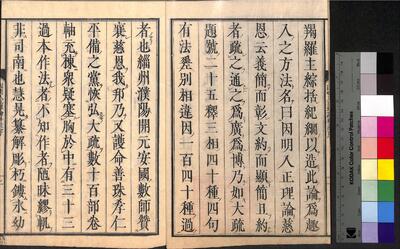 羯羅主綜括紀綱以造此論爲趣
入之方法名曰因明入正理論慈
恩云義簡而彰文約而顯簡且約
者疏之通之爲廣爲博乃如大疏
題號二十五釋三相四十種四句
有法差別相違因一百四十種過
者也緇州濮陽開元安國數師贊
襄慈恩我邦乃又護命善珠孝仁
平備之黨恢弘大疏數十百部卷
軸充棟衆疑塞胸於中有三十三
過本作法者不知作者隨昧繆軌
非司南也慧晃纂解彫朽鏤氷幼
KODAK Color Control Patches